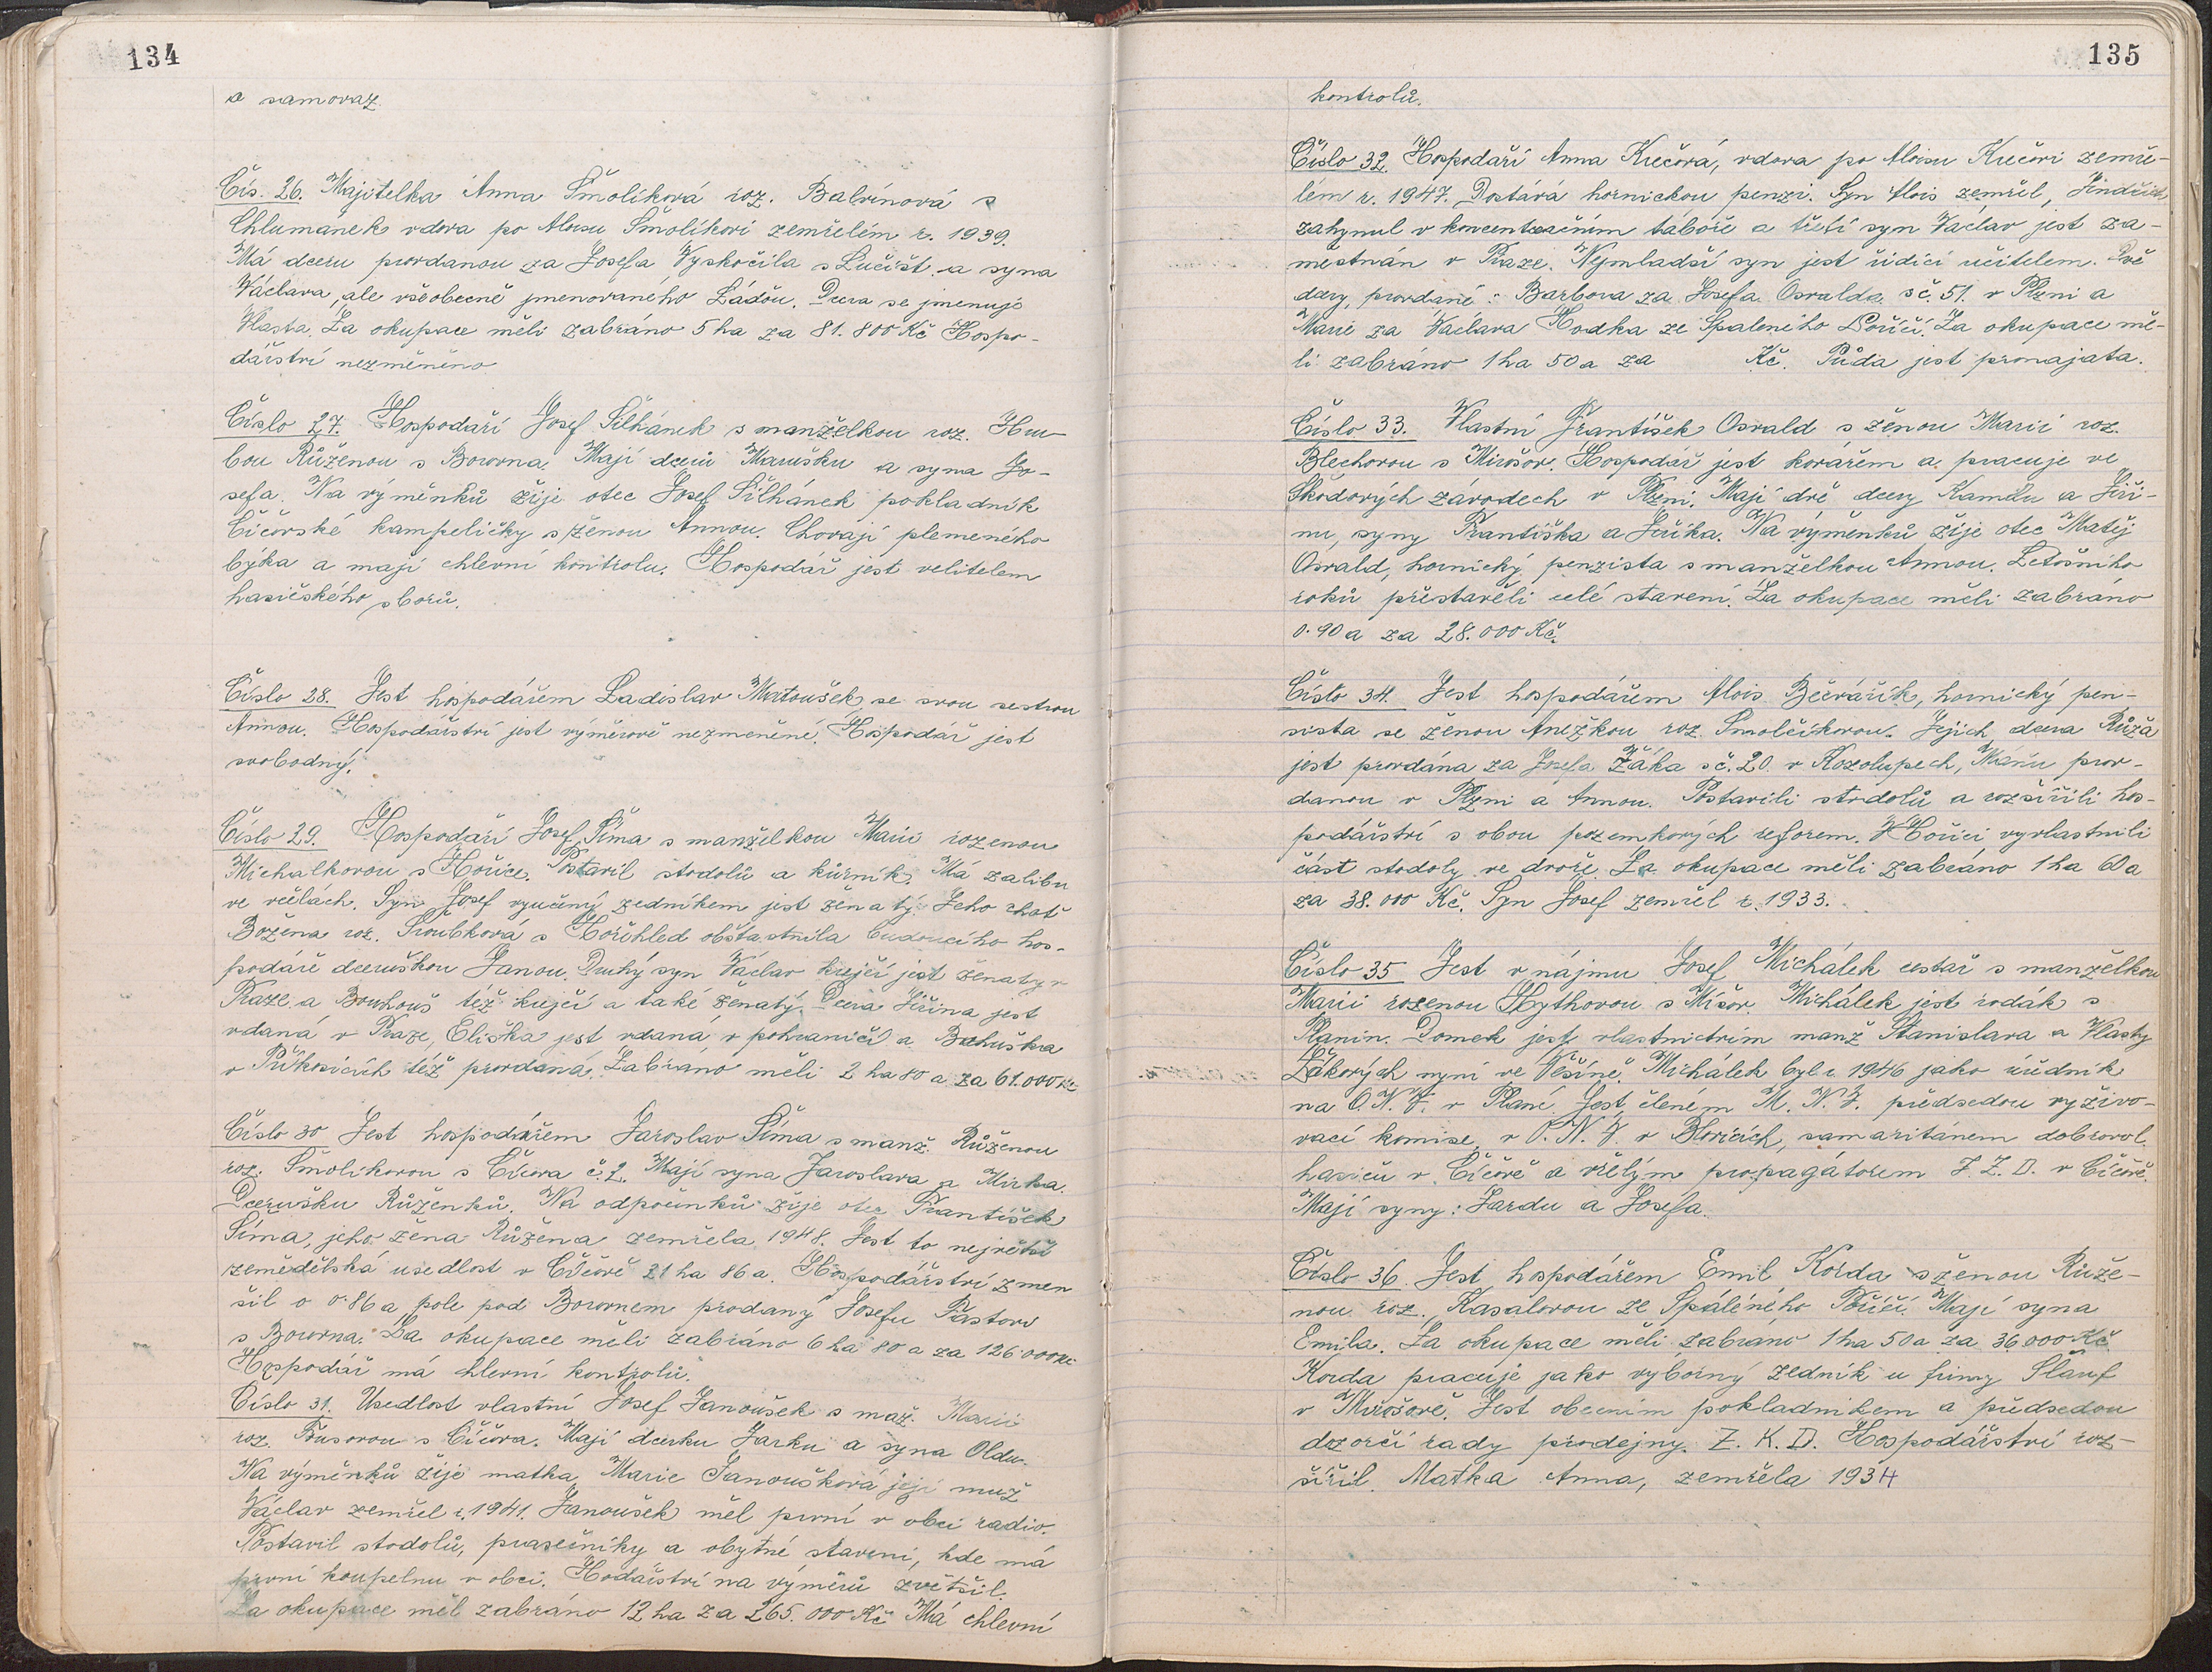 134
a samovaz
Čís. 26. Majitelka Anna Šmolíková roz. Balvínová s
Chlumanek vdova po Aloisu Šmolíkovi zemřelém r. 1939.
Má dceru provdanou za Josefa Vyskočila s Lučišt. a syna
Václava, ale všeobecně jmenovaného Láďou. Dcera se jmenuje
Vlasta. Za okupace měli zabráno 5 ha za 81.800 Kč Hospo-
dářství nezměněno
Číslo 27. Hospodaří Josef Šilhánek s manželkou roz. Hru-
bou Růženou s Borovna. Mají dceru Marušku a syna Jo-
sefa. Na výměnků žije otec Josef Šilhánek pokladník
Číčovské kampeličky s ženou Annou. Chovají plemeného
býka a mají chlevní kontrolu. Hospodář jest velitelem
hasičského sborů.
Číslo 28. Jest hospodářem Ladislav Matoušek se svou sestrou
Annou. Hospodářství jest výměrově nezmeněné. Hospodář jest
svobodný.
Číslo 29. Hospodaří Josef Šíma s manželkou Marií rozenou
Michalkovou s Hořice. Postavil stodolů a kůrník. Má zalibu
ve včelách. Syn Josef vyučený zedníkem jest ženatý. Jeho choť
Božena roz. Sroubková s Hořehled obštastnila budoucího hos-
podáře dceruškou Janou. Druhý syn Václav krejčí jest ženatý v
Praze a Bouhouš též krejčí a také ženatý. Dcera Jiřina jest
vdaná v Praze, Eliška jest vdaná v pohraničí a Bohuška
v Příkosicích též provdaná. Zabráno měli 2 ha 80 a za 61.000 Kč
Číslo 30 Jest hospodářem Jaroslav Šíma s manž. Růženou
roz. Šmolíkovou s Číčova č. 2. Mají syna Jaroslava a Mirka.
Dcerušku Růženků. Na odpočinků žije otec František
Šíma, jeho žena Růžena zemřela 1948. Jest to největší
zemědělská usedlost v Číčově 21 ha 86 a. Hospodářství zmen
šil o 0.86 a pole pod Borovnem prodaný Josefu Pastorů
s Borovna. Za okupace měli zabráno 6 ha 80 a za 126000 Kč
Hospodář má chlevní kontrolů.
Číslo 31. Usedlost vlastní Josef Janoušek s maž. Marií
roz. Busovou s Číčova. Mají dcerku Jarku a syna Oldu.
Na výměnků žije matka Marie Janoušková její muž
Václav zemřel r. 1941. Janoušek měl první v obci radio.
Postavil stodolů, prasečníky a obytné stavení, kde má
první koupelnu v obci. Hodářství na výměrů zvětšil.
Za okupace měl zabráno 12 ha za 265.000 Kč Má chlevní
135
kontrolů.
Číslo 32. Hospodaří Anna Kučová, vdova po Aloisu Kučovi zemře-
lém r. 1947. Dostává hornickou penzi. Syn Alois zemřel, Jindřich
zahynul v koncentračním táboře a třetí syn Václav jest za-
městnán v Praze. Nejmladší syn jest řídící učitelem. Dvě
dcery provdané: Barbora za Josefa Osvalda s č. 51. v Plzni a
Marie za Václava Hodka ze Spáleného Poříčí. Za okupace mě-
li zabráno 1 ha 50 a za Kč. Půda jest pronajata.
Číslo 33. Vlastní František Osvald s ženou Marií roz.
Blechovou s Mirošov. Hospodář jest kovářem a pracuje ve
Škodových závodech v Plzni. Mají dvě dcery Kamilu a Jiři-
nu, syny Františka a Jiříka. Na výměnků žije otec Matěj
Osvald, hornický penzista s manželkou Annou. Letošního
roků přestavěli celé stavení. Za okupace měli zabráno
0.90 a za 28.000 Kč.
Číslo 34. Jest hospodářem Alois Bečvářík, hornický pen-
sista se ženou Anežkou roz. Smolčíkovou. Jejich dcera Růža
jest provdána za Josefa Žáka s č. 20. v Kozolupech, Máňu prov-
danou v Plzni a Annou. Postavili stodolů a rozšířili hos-
podářství s obou pozemkových reforem. V Hořici vyvlastnili
část stodoly ve dvoře. Za okupace měli zabráno 1 ha 60 a
za 38.000 Kč. Syn Josef zemřel r. 1933.
Číslo 35 Jest v nájmu Josef Michálek cestař s manželkou
Marií rozenou Hythovou s Míšov. Michálek jest rodák s
Planin. Domek jest vlastnictvím manž Stanislava a Vlasty
Žákových nyní ve Věšíně. Michálek byl r. 1946 jako uředník
na O.N.V. v Plané. Jest členém M.N.V. předsedou vyživo-
vací komise, v O.N.V. v Blovicích, samaritánem dobrovol.
hasičů v Číčově a vřelým propagátorem J.Z.D. v Číčově.
Mají syny: Jardu a Josefa.
Číslo 36. Jest hospodářem Emil Korda s ženou Růže-
nou roz. Kasalovou ze Spáleného Poříčí. Mají syna
Emila. Za okupace měli zabráno 1 ha 50 a za 36000 Kč
Korda pracuje jako vyborný zedník u firmy Šlauf
v Mirošově. Jest obecním pokladníkem a předsedou
dozorčí rady prodejny Z.K.D. Hospodářství roz-
šířil. Matka Anna, zemřela 1934